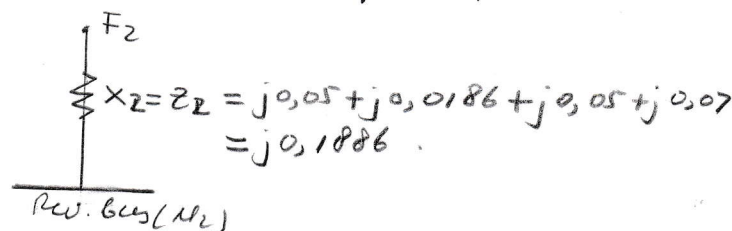 F2
X2 = Z2 = j0,05 + j0,0186 + j0,05 + j0,07
= j0,1886.
bus (N2)